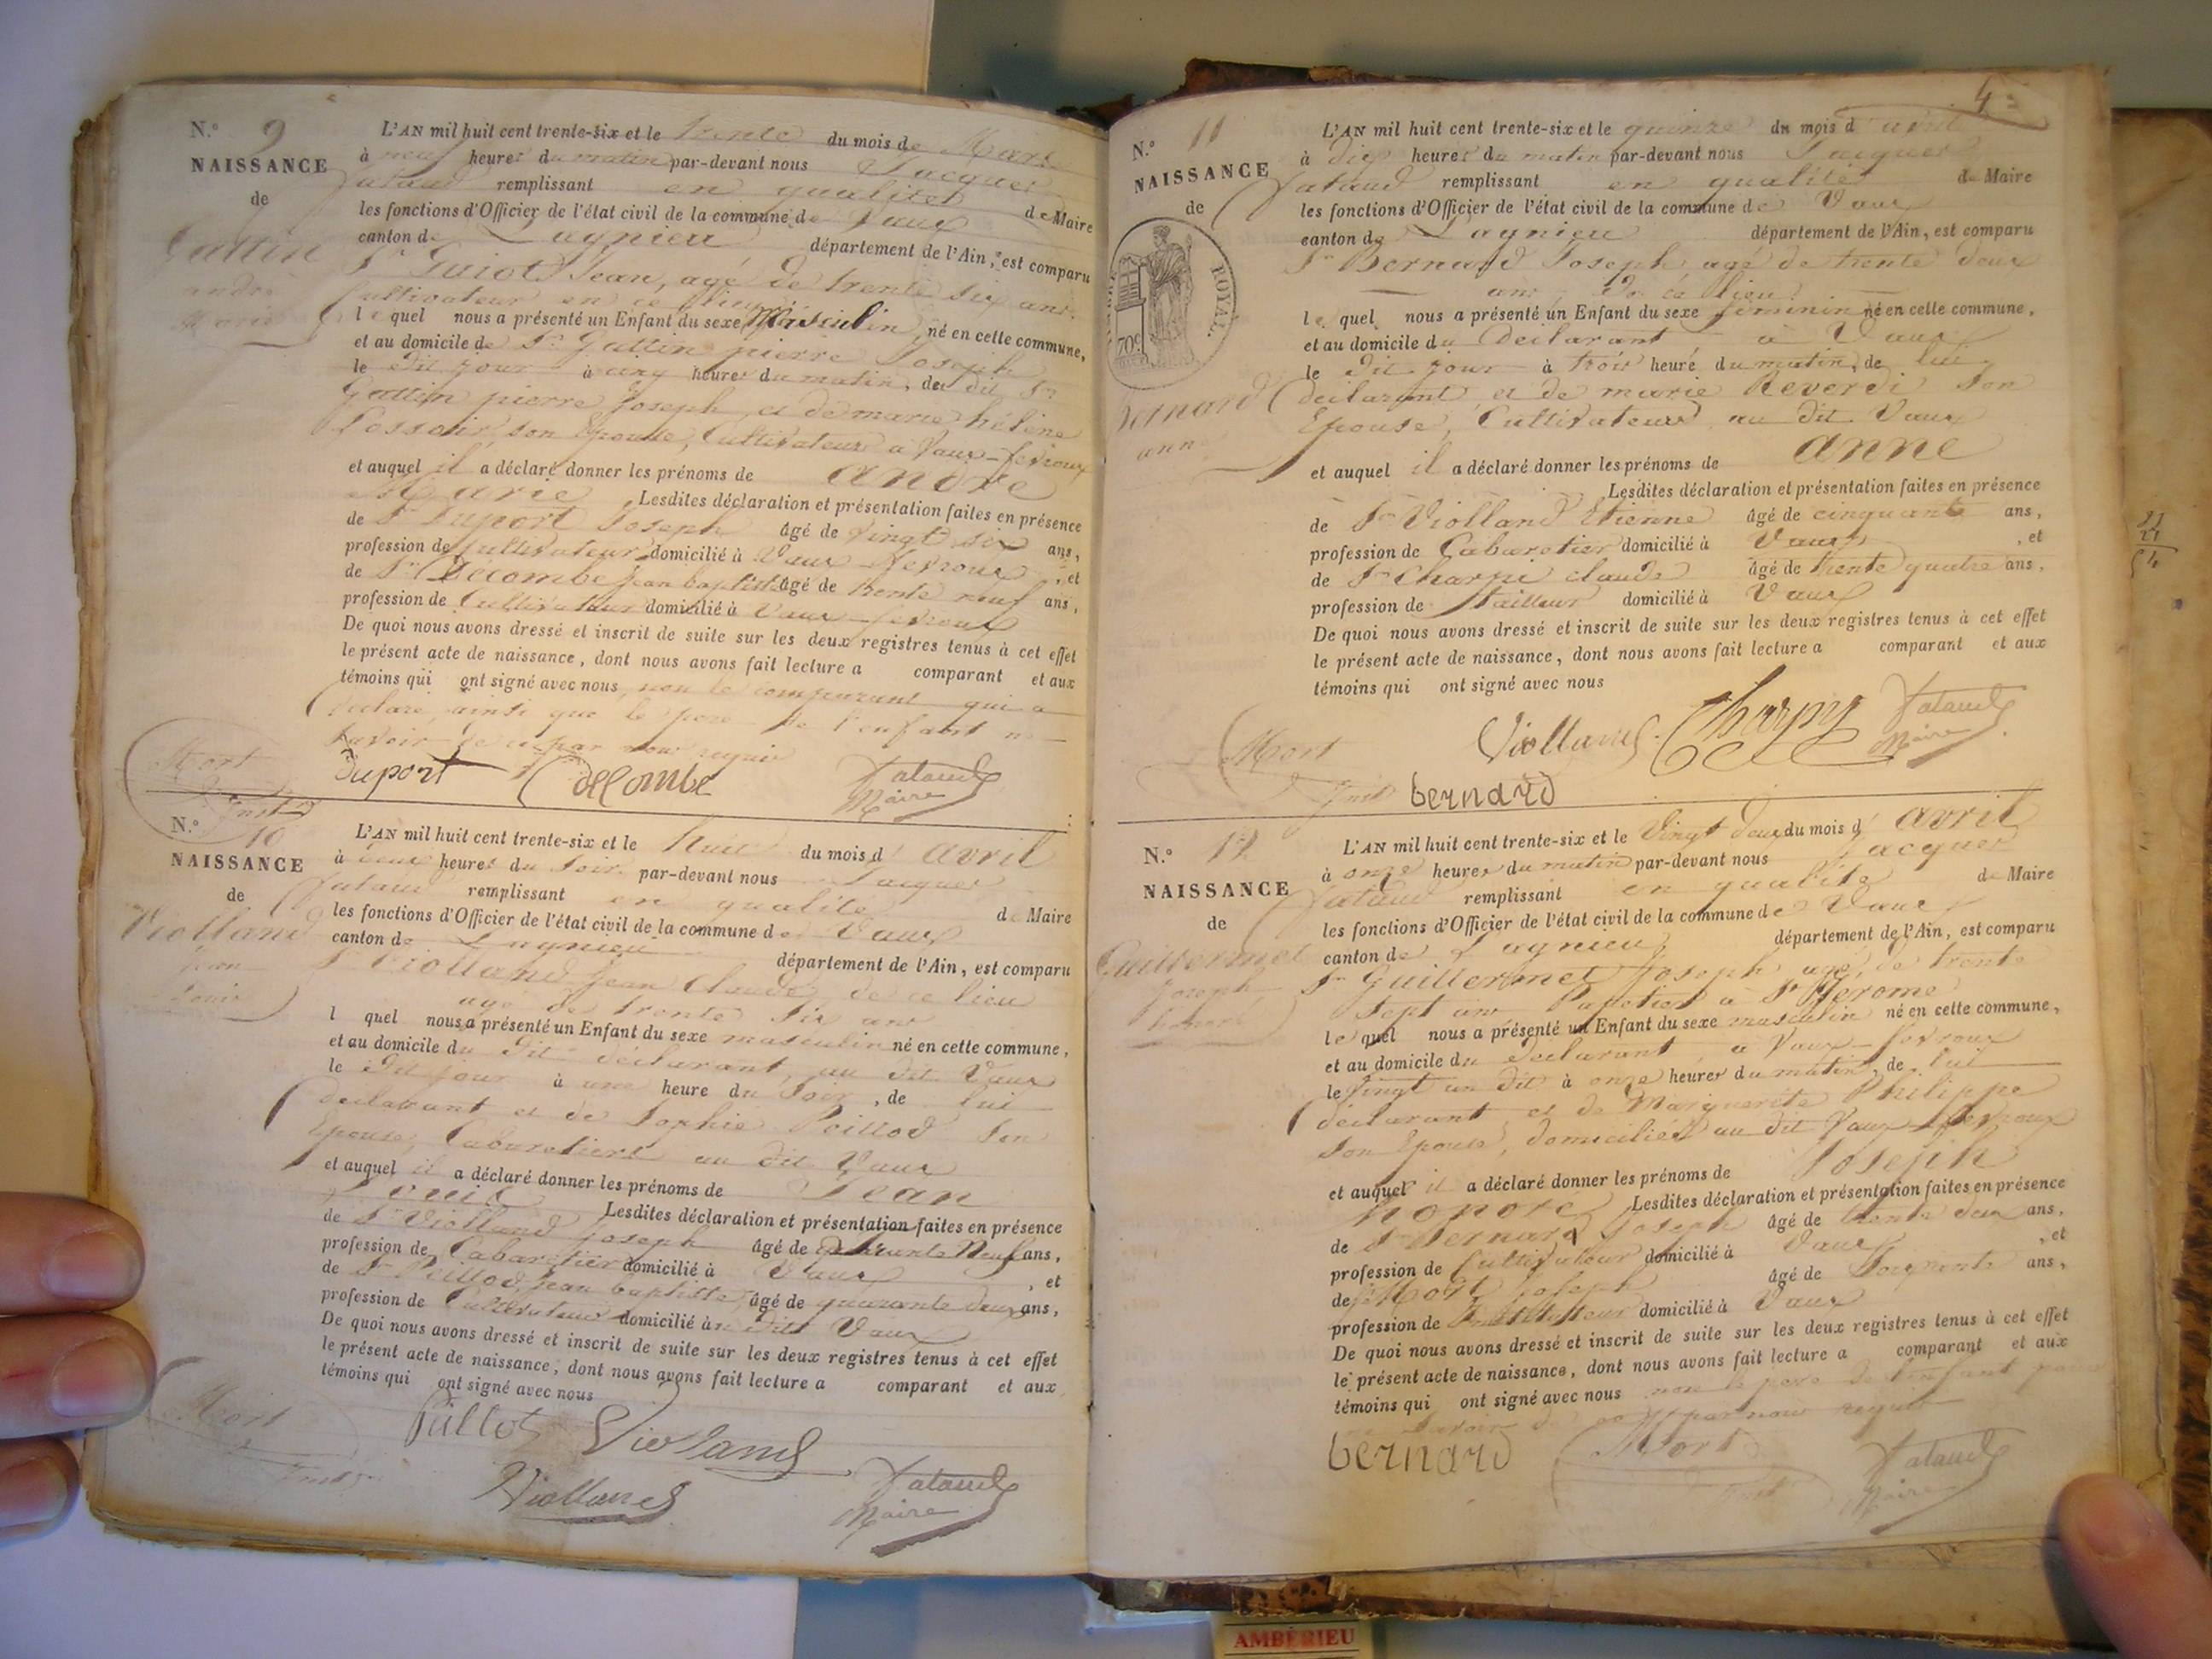 N.° 9
NAISSANCE
de
Gattin
andré
Marie
L'AN mil huit cent trente-six et le trente du mois de Mars
à neuf heures du matin par-devant nous Jacques
remplissant en qualité de Maire
les fonctions d'Officier de l'état civil de la commune de Vaux
canton de Lagnieu département de l'Ain, est comparu
Sr Guiot Jean, agé de trente six ans
Cultivateur en ce lieu
lequel nous a présenté un Enfant du sexe Masculin, né en cette commune,
et au domicile de Sr Gattin pierre Joseph
le dit jour à cinq heures du matin, de dit Sr
Gattin pierre Joseph et de marie hélène
son Epouse, Cultivateurs a Vaux-fevroux
et auquel il a déclaré donner les prénoms de andré
Marie Lesdites déclaration et présentation faites en présence
de Sr Duport Joseph âgé de vingt six ans,
profession de Cultivateur domicilié à Vaux fevroux, et
de Sr Decombe jean baptiste âgé de trente neuf ans,
profession de Cultivateur domicilié à Vaux fevroux
De quoi nous avons dressé et inscrit de suite sur les deux registres tenus à cet effet
le présent acte de naissance, dont nous avons fait lecture a comparant et aux
témoins qui ont signé avec nous, non le comparant qui a
déclaré, ainsi que le pere de l'enfant ne
savoir de ce par nous requis
Mort
Duport Decombe Jataud
Maire
N.° 10
NAISSANCE
de
Violland
Jean
Louis
L'AN mil huit cent trente-six et le huit du mois d' avril
à deux heures du soir par-devant nous Jacques
Jataud remplissant en qualité de Maire
les fonctions d'Officier de l'état civil de la commune de Vaux
canton de Lagnieu département de l'Ain, est comparu
Sr Violland Jean Claude, de ce lieu
agé de trente six ans
l quel nous a présenté un Enfant du sexe masculin né en cette commune,
et au domicile du dit déclarant, au dit Vaux
le dit jour à une heure du soir, de lui
déclarant et de Sophie Peillod son
Epouse, Cabaretiers au dit Vaux
et auquel il a déclaré donner les prénoms de Jean
Louis Lesdites déclaration et présentation faites en présence
de Sr Violland Joseph âgé de quarante Neuf ans,
profession de Cabaretier domicilié à Vaux, et
de Sr Peillod, Jean baptiste, âgé de quarante deux ans,
profession de Cultivateur domicilié au dit Vaux
De quoi nous avons dressé et inscrit de suite sur les deux registres tenus à cet effet
le présent acte de naissance, dont nous avons fait lecture a comparant et aux
témoins qui ont signé avec nous
Mort
Pillot Violland
Violland Jataud
Maire
4
N.° 11
NAISSANCE
de
ROYAL.
70c
Bernard
anne
L'AN mil huit cent trente-six et le quinze du mois d' avril
à dix heures du matin par-devant nous Jacques
Jataud remplissant en qualité de Maire
les fonctions d'Officier de l'état civil de la commune de Vaux
canton de Lagnieu département de l'Ain, est comparu
Sr Bernard Joseph agé de trente deux
ans, de ce lieu
lequel nous a présenté un Enfant du sexe féminin né en cette commune,
et au domicile du Déclarant, à Vaux
le dit jour à trois heure du matin, de lui
déclarant et de marie Reverdi son
Epouse, Cultivateurs, au dit Vaux
et auquel il a déclaré donner les prénoms de anne
Lesdites déclaration et présentation faites en présence
de Sr Violland Etienne âgé de cinquante ans,
profession de Cabaretier domicilié à Vaux, et
de Sr Charpi claude âgé de trente quatre ans,
profession de tailleur domicilié à Vaux
De quoi nous avons dressé et inscrit de suite sur les deux registres tenus à cet effet
le présent acte de naissance, dont nous avons fait lecture a comparant et aux
témoins qui ont signé avec nous
Violland Charpy Jataud
Maire
Mort
bernard
N.° 12
NAISSANCE
de
Guillermet
Joseph
honoré
L'AN mil huit cent trente-six et le vingt deux du mois d' avril
à onze heures du matin par-devant nous Jacques
Jataud remplissant en qualité de Maire
les fonctions d'Officier de l'état civil de la commune de Vaux
canton de Lagnieu département de l'Ain, est comparu
Sr Guillermet Joseph agé de trente
sept ans Papetier a St Jerome
lequel nous a présenté un Enfant du sexe masculin né en cette commune,
et au domicile du déclarant, a Vaux-fevroux
le vingt un dit à onze heures du matin, de lui
déclarant et de Marguerite Philippe
son Epouse, domiciliés au dit Vaux fevroux
et auquel il a déclaré donner les prénoms de Joseph
honoré Lesdites déclaration et présentation faites en présence
de Sr Bernard Joseph âgé de trente deux ans,
profession de Cultivateur domicilié à Vaux, et
de Sr Mort joseph âgé de soixante ans,
profession de Instituteur domicilié à Vaux
De quoi nous avons dressé et inscrit de suite sur les deux registres tenus à cet effet
le présent acte de naissance, dont nous avons fait lecture a comparant et aux
témoins qui ont signé avec nous non le pere de l'enfant pour
ne savoir de ce par nous requis
bernard Mort Jataud
Maire
AMBÉRIEU